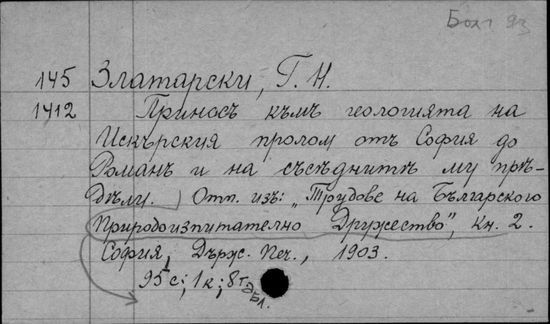 Бол 93
145 Златарски, Г. Н.
1412 Приносъ къмъ геологията на
Искърския пролом отъ София до
Романъ и на съсѣднитѣ му прѣ-
дѣлу. Отп. изъ: „Трудове на Българского
Природоизпитателно Дружество", Кн. 2.
София, Държ. Печ., 1903.
95 с; 1 к; 8 табл.